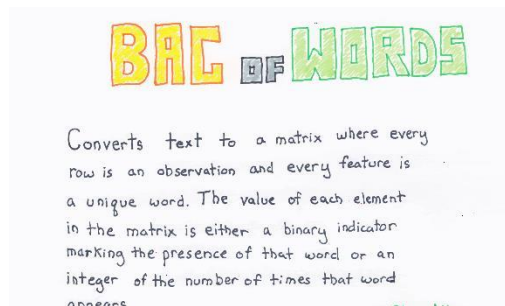 BAG OF WORDS
Converts text to a matrix where every
row is an observation and every feature is
a unique word. The value of each element
in the matrix is either a binary indicator
marking the presence of that word or an
integer of the number of times that word
appears